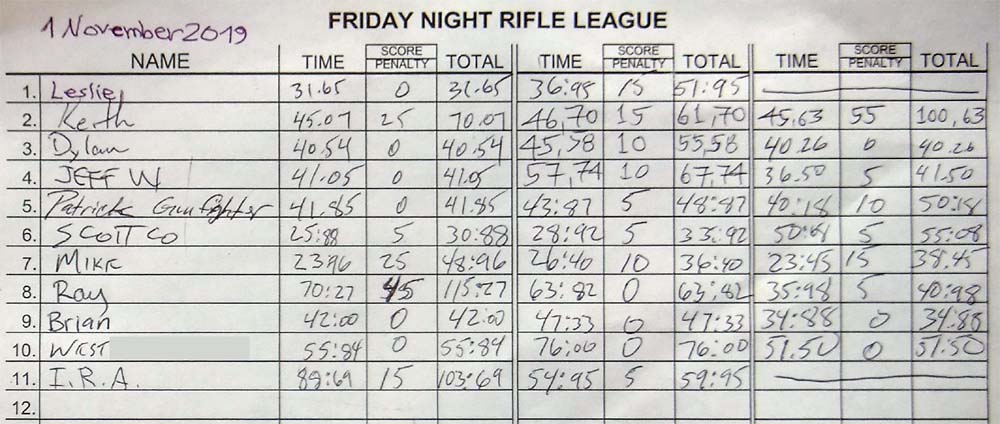 1 November 2019
FRIDAY NIGHT RIFLE LEAGUE
NAME TIME SCORE PENALTY TOTAL TIME SCORE PENALTY TOTAL TIME SCORE PENALTY TOTAL
1. Leslie 31.65 0 31.65 36:95 15 51:95
2. Keith 45.07 25 70.07 46,70 15 61,70 45,63 55 100,63
3. Dylan 40.54 0 40.54 45,58 10 55,58 40.26 0 40.26
4. JEFF W 41.05 0 41.05 57,74 10 67,74 36.50 5 41.50
5. Patrick Gunfighter 41.85 0 41.85 43:87 5 48:87 40:18 10 50:18
6. SCOTT CO 25:88 5 30:88 28:92 5 33:92 5 55:08
7. MIKE 23:96 25 48:96 26:40 10 36:40 23:45 15 38:45
8. Ray 70:27 45 115:27 63:82 0 63:82 35:98 5 40:98
9. Brian 42:00 0 42:00 47:33 0 47:33 34:88 0 34:88
10. WEST 55:84 0 55:84 76:00 0 76:00 51.50 0 51:50
11. I.R.A. 88:69 15 103:69 54:95 5 59:95
12.